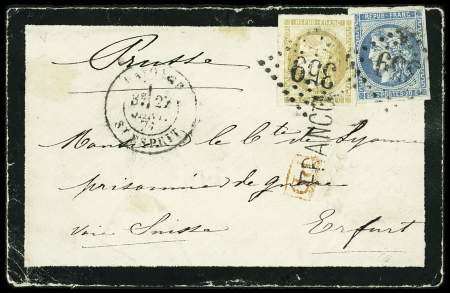 REPUB · FRANC
REPUB · FRANC
369
Prusse
BAYONNE
27
JANV.
71
ST ESPRIT
FRANCO
P.D.
Monsieur le Cte de Lyonne
prisonnier de guerre
voie Suisse Erfurt